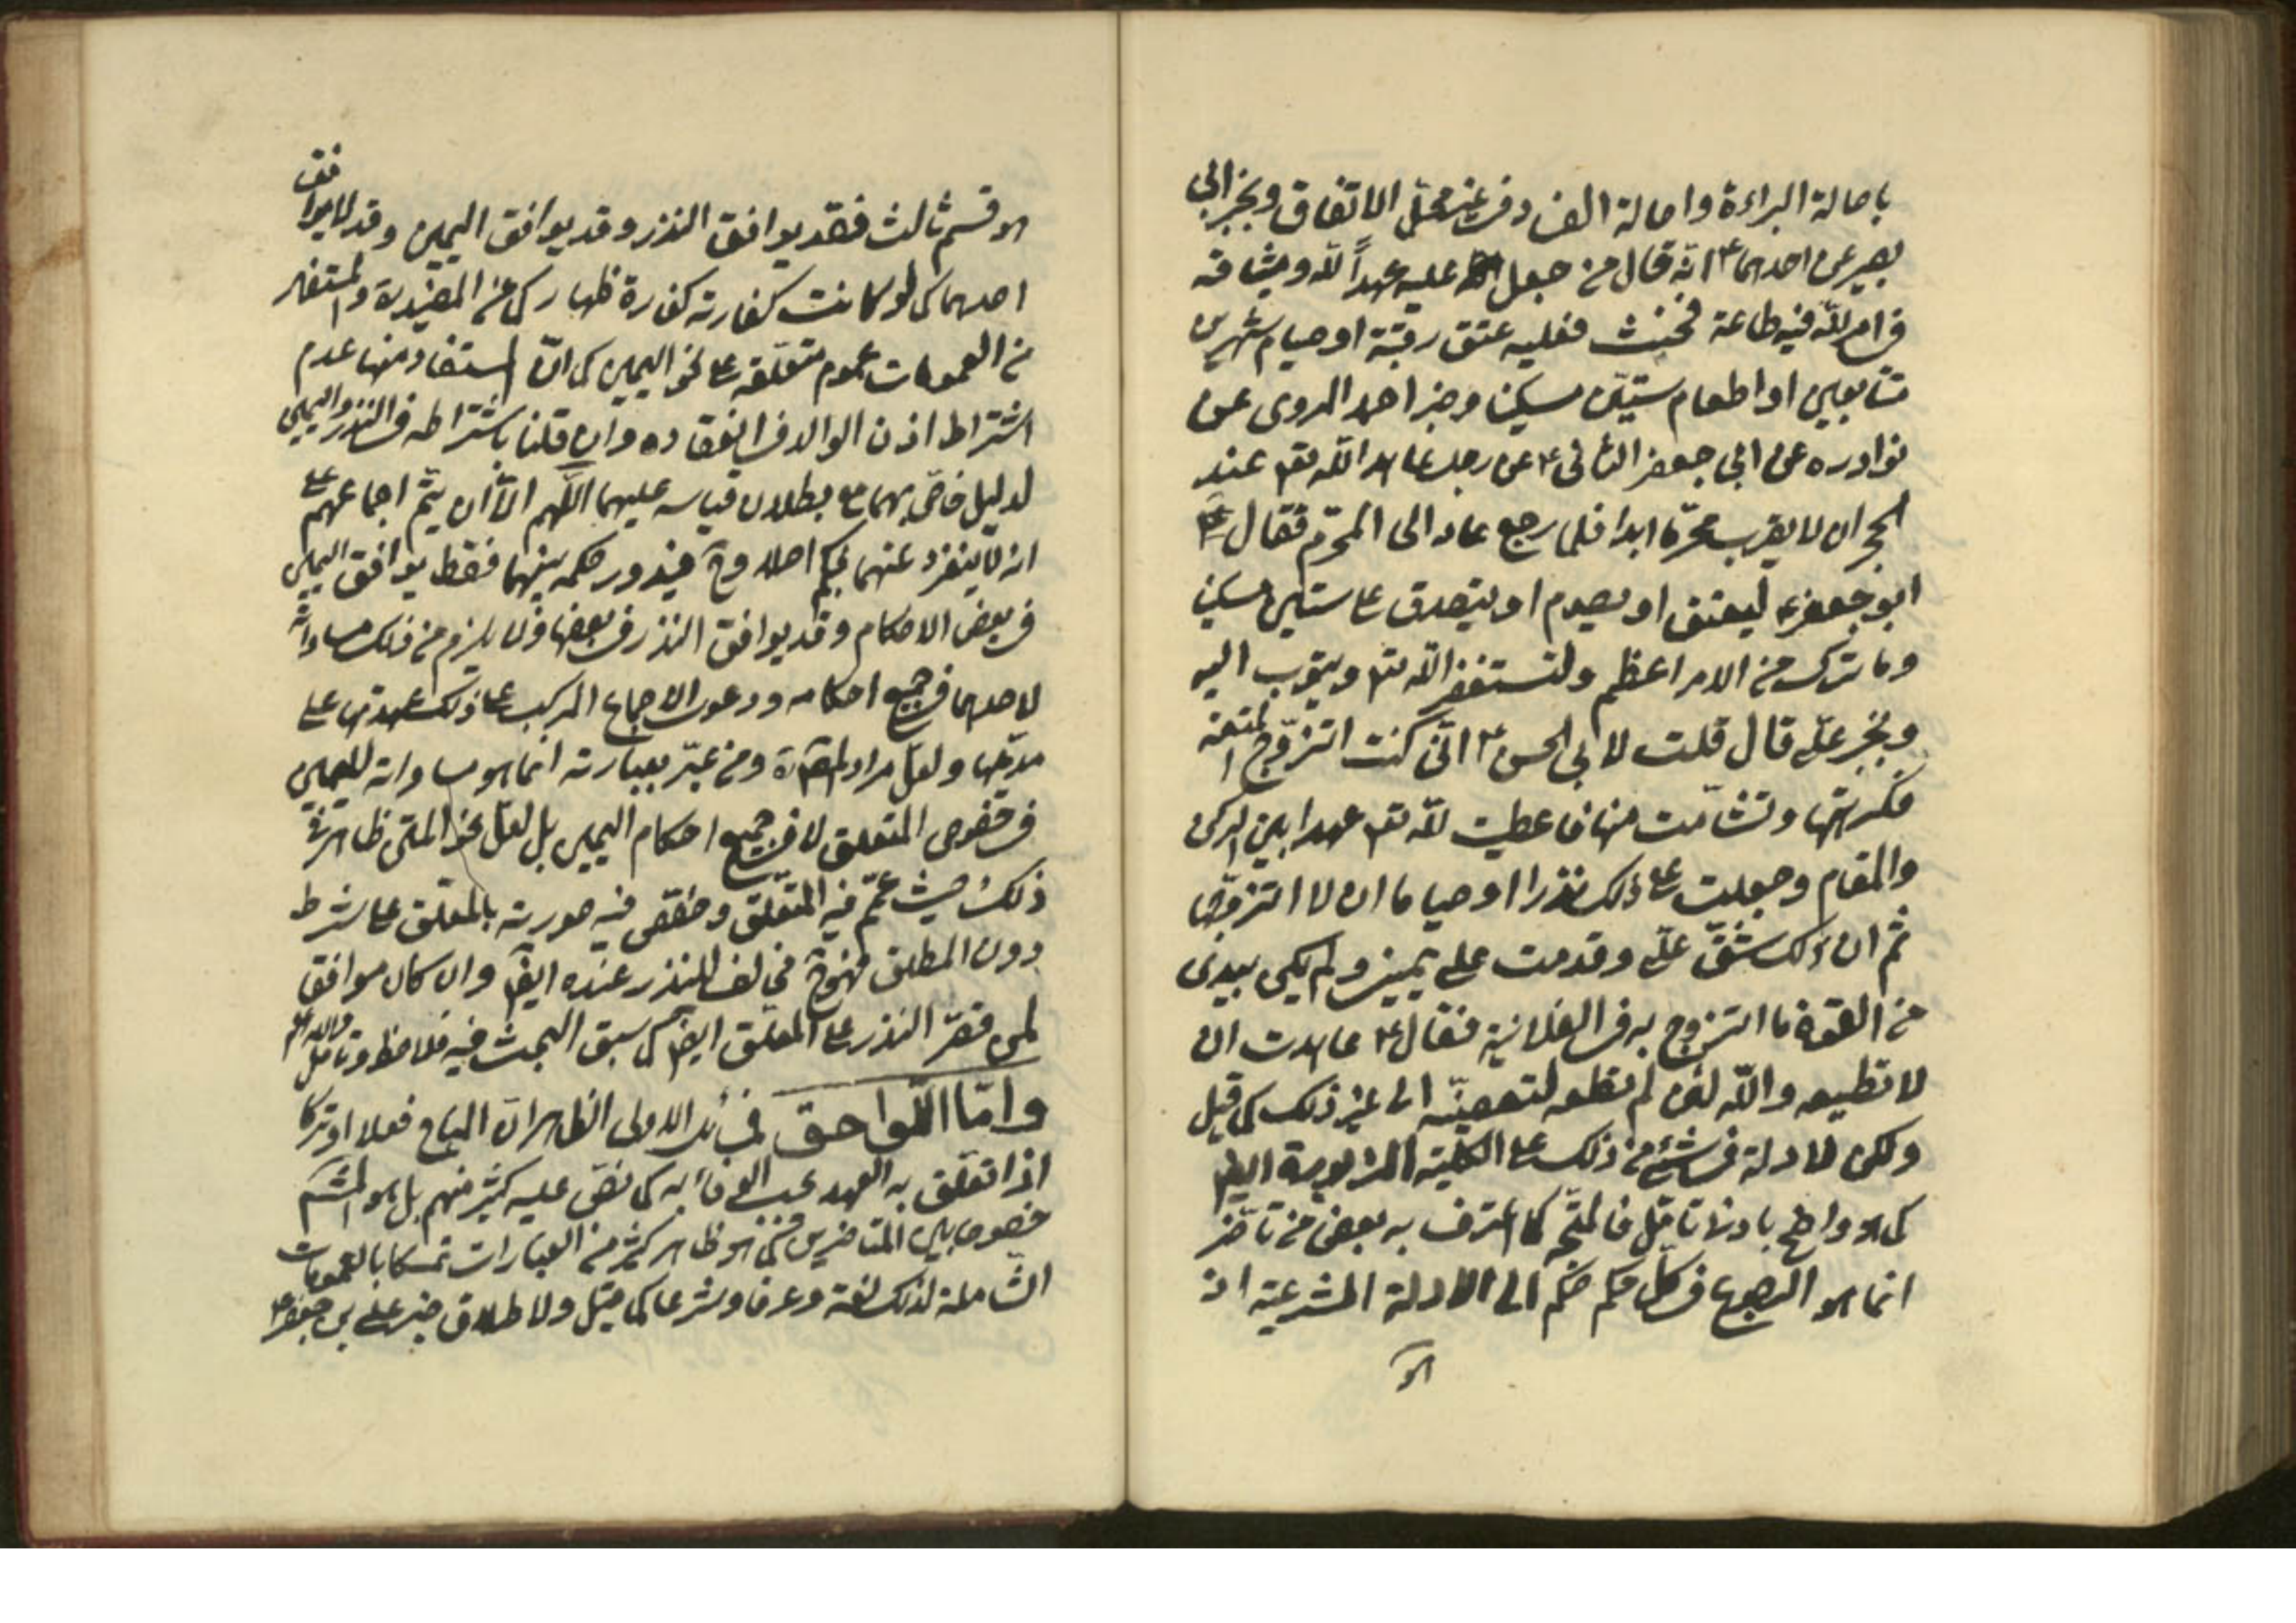 باصالة البراءة واصالة الفساد في غير محل الاتفاق وبخبر ابي
بصير عن احدهما ع انه قال من جعل عليه عهداً لله وميثاقه
في امر لله فيه طاعة فحنث فعليه عتق رقبة او صيام شهرين
متتابعين او اطعام ستين مسكينا وخبر احمد المروي عن
نوادره عن ابي جعفر الثاني ع عن رجل عاهد الله تعم عند
الحجر ان لا يقرب محرّما ابدا فلما رجع عاد الى المحرّم فقال ع
ابو جعفر ع ليعتق او يصوم او يتصدق على ستين مسكينا
وما ترك من الامر اعظم وليستغفر الله تعم ويتوب اليه
وبخبر علي قال قلت لابي الحسن ع انّي كنت اتزوّج المتعة
فكرهتها وتشأّمت منها فاعطيت لله تعم عهدا بين الركن
والمقام وجعلت على ذلك نذرا او صياما ان لا اتزوّجها
ثم ان ذلك شقّ عليّ وقدمت على يميني ولم يكن بيدي
من القوة ما اتزوج به في العلانية فقال ع عاهدت ان
لا تطيعه والله لئن لم تطعه لتعصينّه الى غير ذلك كما قيل
ولكن لا دلالة في شئ من ذلك على الكلية المزبورة ايضا
كما هو واضح بادنى تامّل فالمتّجه كما اعترف به بعض من تاخّر
انما هو الرجوع في كلّ حكم حكم الى الادلة الشرعية اذ
هو
هو قسم ثالث فقد يوافق النذر وقد يوافق اليمين وقد لا يوافق
احدهما كما لو كانت كفارته كفارة ظهار كما عن المفيد ره والمستفاد
من العمومات عموم متعلقه على نحو اليمين كما انّ المستفاد منها عدم
اشتراط اذن الوالد في انعقاده وان قلنا باشتراطه في النذر واليمين
لدليل خاصّ بهما مع بطلان قياسه عليهما اللّهم الاّ ان يتمّ اجماعهم على
انه لا ينفرد عنهما بحكم اصلا وح فيدور حكمه بينهما فقط يوافق اليمين
في بعض الاحكام وقد يوافق النذر في بعضها ولا يلزم من ذلك مساواته
لاحدهما في جميع احكامه ودعوى الاجماع المركب على ذلك عهدتها على
مدّعيها ولعلّ مراد المصره ومن عبّر بعبارته انما هو مساواته لليمين
في خصوص المتعلق لا في جميع احكام اليمين بل لعلّ نحو المتن ظاهر في
ذلك حيث عمّم فيه المتعلّق وخصّص فيه صورته بالمعلّق على شرط
دون المطلق فهو ح مخالف للنذر عنده ايضا وان كان موافق
لمن قصّر النذر على المعلّق ايضا كما سبق البحث فيه فلاحظ وتامّل والله العالم
وامّا اللّواحق فمسائل الاولى الظاهر انّ المباح فعلا او تركا
اذا تعلّق به العهد يجب الوفاء به كما نصّ عليه كثير منهم بل هو المشهور
خصوصا بين المتاخرين كما هو ظاهر كثير من العبارات تمسكا بالعمومات
الشّاملة لذلك لغة وعرفا وشرعا كما قيل ولاطلاق خبر علي بن جعفر ع